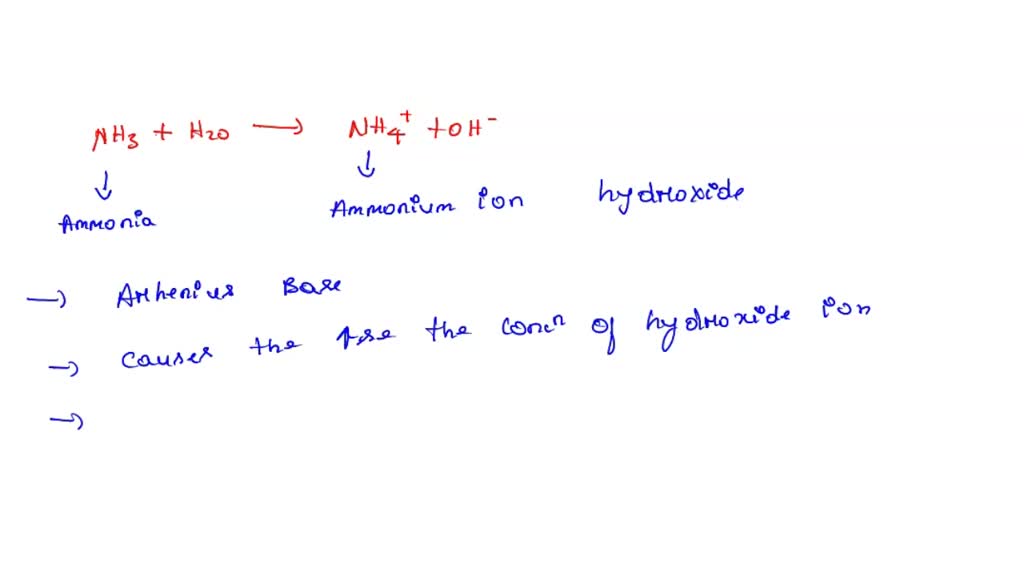 NH3 + H2O → NH4+ + OH-
↓ ↓
Ammonia Ammonium ion hydroxide
→ Arhenius Base
→ causes the the concn of hydroxide ion
→